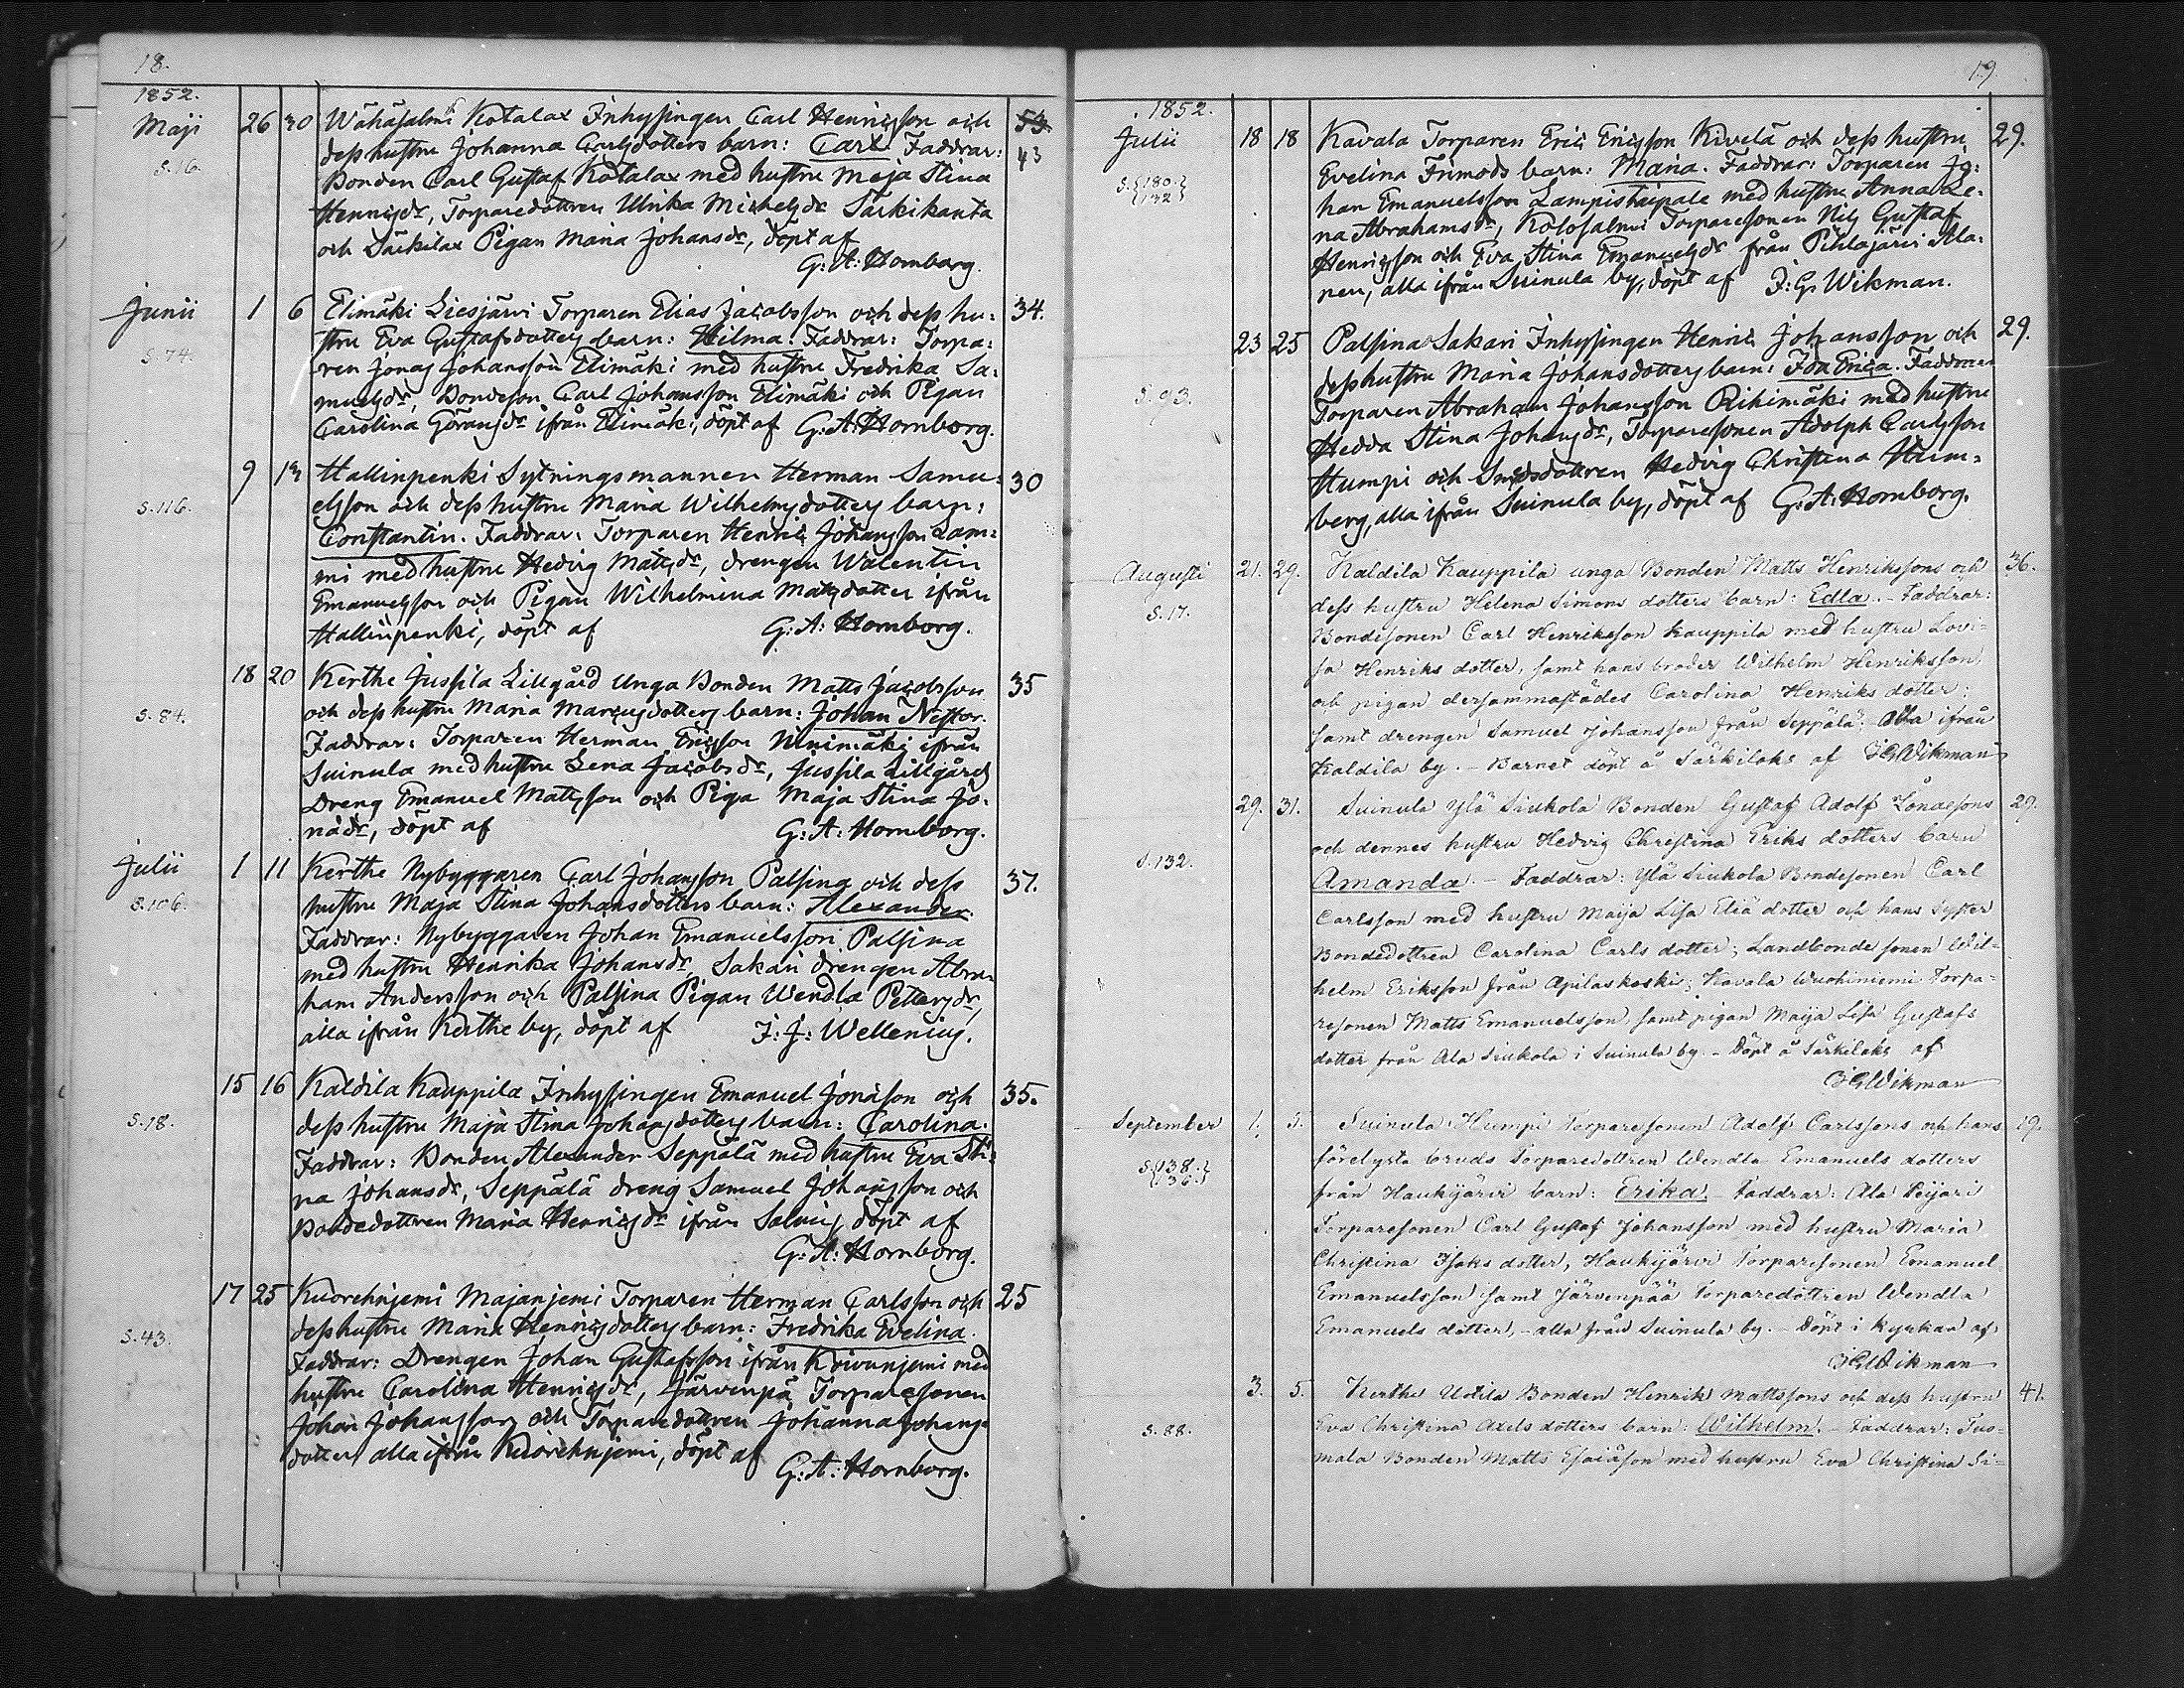 18.
1852.
Maji 26 30 Wähäsalmi Kotalax Inhysingen Carl Henricsson och 53.
S.16. dess hustru Johanna Carlsdotters barn: Carl. Faddrar: 43
Bonden Carl Gustaf Kotalax med hustru Maja Stina
Henricsdr, Torparedottren Ulrika Michelsdr Särkikanta
och Särkilax Pigan Maria Johansdr, döpt af
G: A: Hornborg.
Junii 1 6 Elimäki Liesjärvi Torparen Elias Jacobsson och dess hu- 34.
S.74. stru Eva Gustafsdotters barn: Hilma. Faddrar: Torpa-
ren Jonas Johansson Elimäki med hustru Fredrika Sa-
muelsdr, Bondeson Carl Johansson Elimäki och Pigan
Carolina Göransdr ifrån Elimäki, döpt af G: A: Hornborg.
9 13 Hallinpenki Sytningsmannen Herman Samu- 30
S.116. elsson och dess hustru Maria Wilhelmsdotters barn:
Constantin. Faddrar: Torparen Henric Johansson Lam-
mi med hustru Hedvig Mattsdr, drengen Walentin
Emanuelsson och Pigan Wilhelmina Mattsdotter ifrån
Hallinpenki, döpt af G: A: Hornborg.
18 20 Kerthe Jussila Lillgård Unga Bonden Matts Jacobsson 35
S.84. och dess hustru Maria Marcusdotters barn: Johan Nestor.
Faddrar: Torparen Herman Ericsson Ninimäki ifrån
Suinula med hustru Lena Jacobsdr, Jussila Lillgård
Dreng Emanuel Mattsson och Piga Maja Stina Jo-
nädr, döpt af G: A: Hornborg.
Julii 1 11 Kerthe Nybyggaren Carl Johansson Palsina och dess 37.
S.106. hustru Maja Stina Johansdotters barn: Alexander.
Faddrar: Nybyggaren Johan Emanuelsson Palsina
med hustru Henrika Johansdr, Sakari drengen Abra-
ham Andersson och Palsina Pigan Wendla Pettersdr,
alla ifrån Kerthe by, döpt af J: J: Wellenius.
15 16 Kaldila Kauppila Inhysingen Emanuel Jonäson och 35.
S.18. dess hustru Maja Stina Johansdotters barn: Carolina.
Faddrar: Bonden Alexander Seppälä med hustru Eva Sti-
na Johansdr, Seppälä dreng Samuel Johansson och
Bondedottren Maria Henricsdr ifrån döpt af
G: A: Hornborg.
17 25 Kuorehnjemi Majanjemi Torparen Herman Carlsson och 25
S.43. dess hustru Maria Henricsdotters barn: Fredrika Evelina.
Faddrar: Drengen Johan Gustafsson ifrån Koivunjemi med
hustru Carolina Henricsdr, Järvenpä Torparesonen
Johan Johansson och Torparedottren Johanna Johans-
dotter alla ifrån Kuorehnjemi, döpt af
G: A: Hornborg.
19.
1852.
Julii 18 18 Kavala Torparen Eric Ericsson Kivelä och dess hustru 29.
S.{180. 132} Evelina Frimods barn: Maria. Faddrar: Torparen Jo-
han Emanuelsson Lampistaipale med hustru Anna Le-
na Abrahamsdr, Kolosalmi Torparesonen Nils Gustaf
Henricsson och Eva Stina Emanuelsdr från Pihlajärvi Ala-
nen, alla ifrån Suinula by, döpt af J: G: Wikman.
23 25 Palsina Sakari Inhysingen Henric Johansson och 29.
S.93. dess hustru Maria Johansdotters barn: Ida Erica. Faddrar:
Torparen Abraham Johansson Rihimäki med hustru
Hedda Stina Johansdr, Torparesonen Adolph Carlsson
Humpi och Smedsdottren Hedvig Christina Heim-
berg, alla ifrån Suinula by, döpt af G: A: Hornborg.
Augusti 21. 29. Kaldila Kauppila unga Bonden Matts Henrikssons och 36.
S.17. dess hustru Helena Simons dotters barn: Edla. - Faddrar:
Bondesonen Carl Henriksson Kauppila med hustru Lovi-
sa Henriks dotter, samt hans broder Wilhelm Henriksson,
och pigan dersammastädes Carolina Henriks dotter;
samt drengen Samuel Johansson från Seppälä. Alla ifrån
Kaldila by. - Barnet döpt å Särkilaks af JGWikman
29. 31. Suinula Ylä Siukola Bonden Gustaf Adolf Jonaesons 29.
S.132. och dennes hustru Hedvig Christina Eriks dotters barn
Amanda. - Faddrar: Ylä Siukola Bondesonen Carl
Carlsson med hustru Maija Lisa Eliä dotter och hans syster
Bondedottren Carolina Carls dotter; Landbonde sonen Wil-
helm Eriksson från Apilaskoski; Kavala Wuohiniemi Torpa-
resonen Matts Emanuelsson samt pigan Maija Lisa Gustafs
dotter från Ala Siukola i Suinula by. - Döpt å Särkilaks af
JGWikman
September 1. 5. Suinula Humpi Torparesonen Adolf Carlssons och hans 19.
S.{138. 136.} förelysta bruds Torparedottren Wendla Emanuels dotters
från Haukijärvi barn: Erika. - Faddrar: Ala Peijari
Torparesonen Carl Gustaf Johansson med hustru Maria
Christina Isaks dotter, Haukijärvi Torparesonen Emanuel
Emanuelsson samt Järvenpää Torparedottren Wendla
Emanuels dotter, - alla från Suinula by. - Döpt i kyrkan af
JGWikman
3. 5. Kerthe Uotila Bonden Henrik Mattssons och dess hustru 41.
S.88. Eva Christina Axels dotters barn: Wilhelm. - Faddrar: Tuo-
mala Bonden Matts Esaiäson med hustru Eva Christina Si-